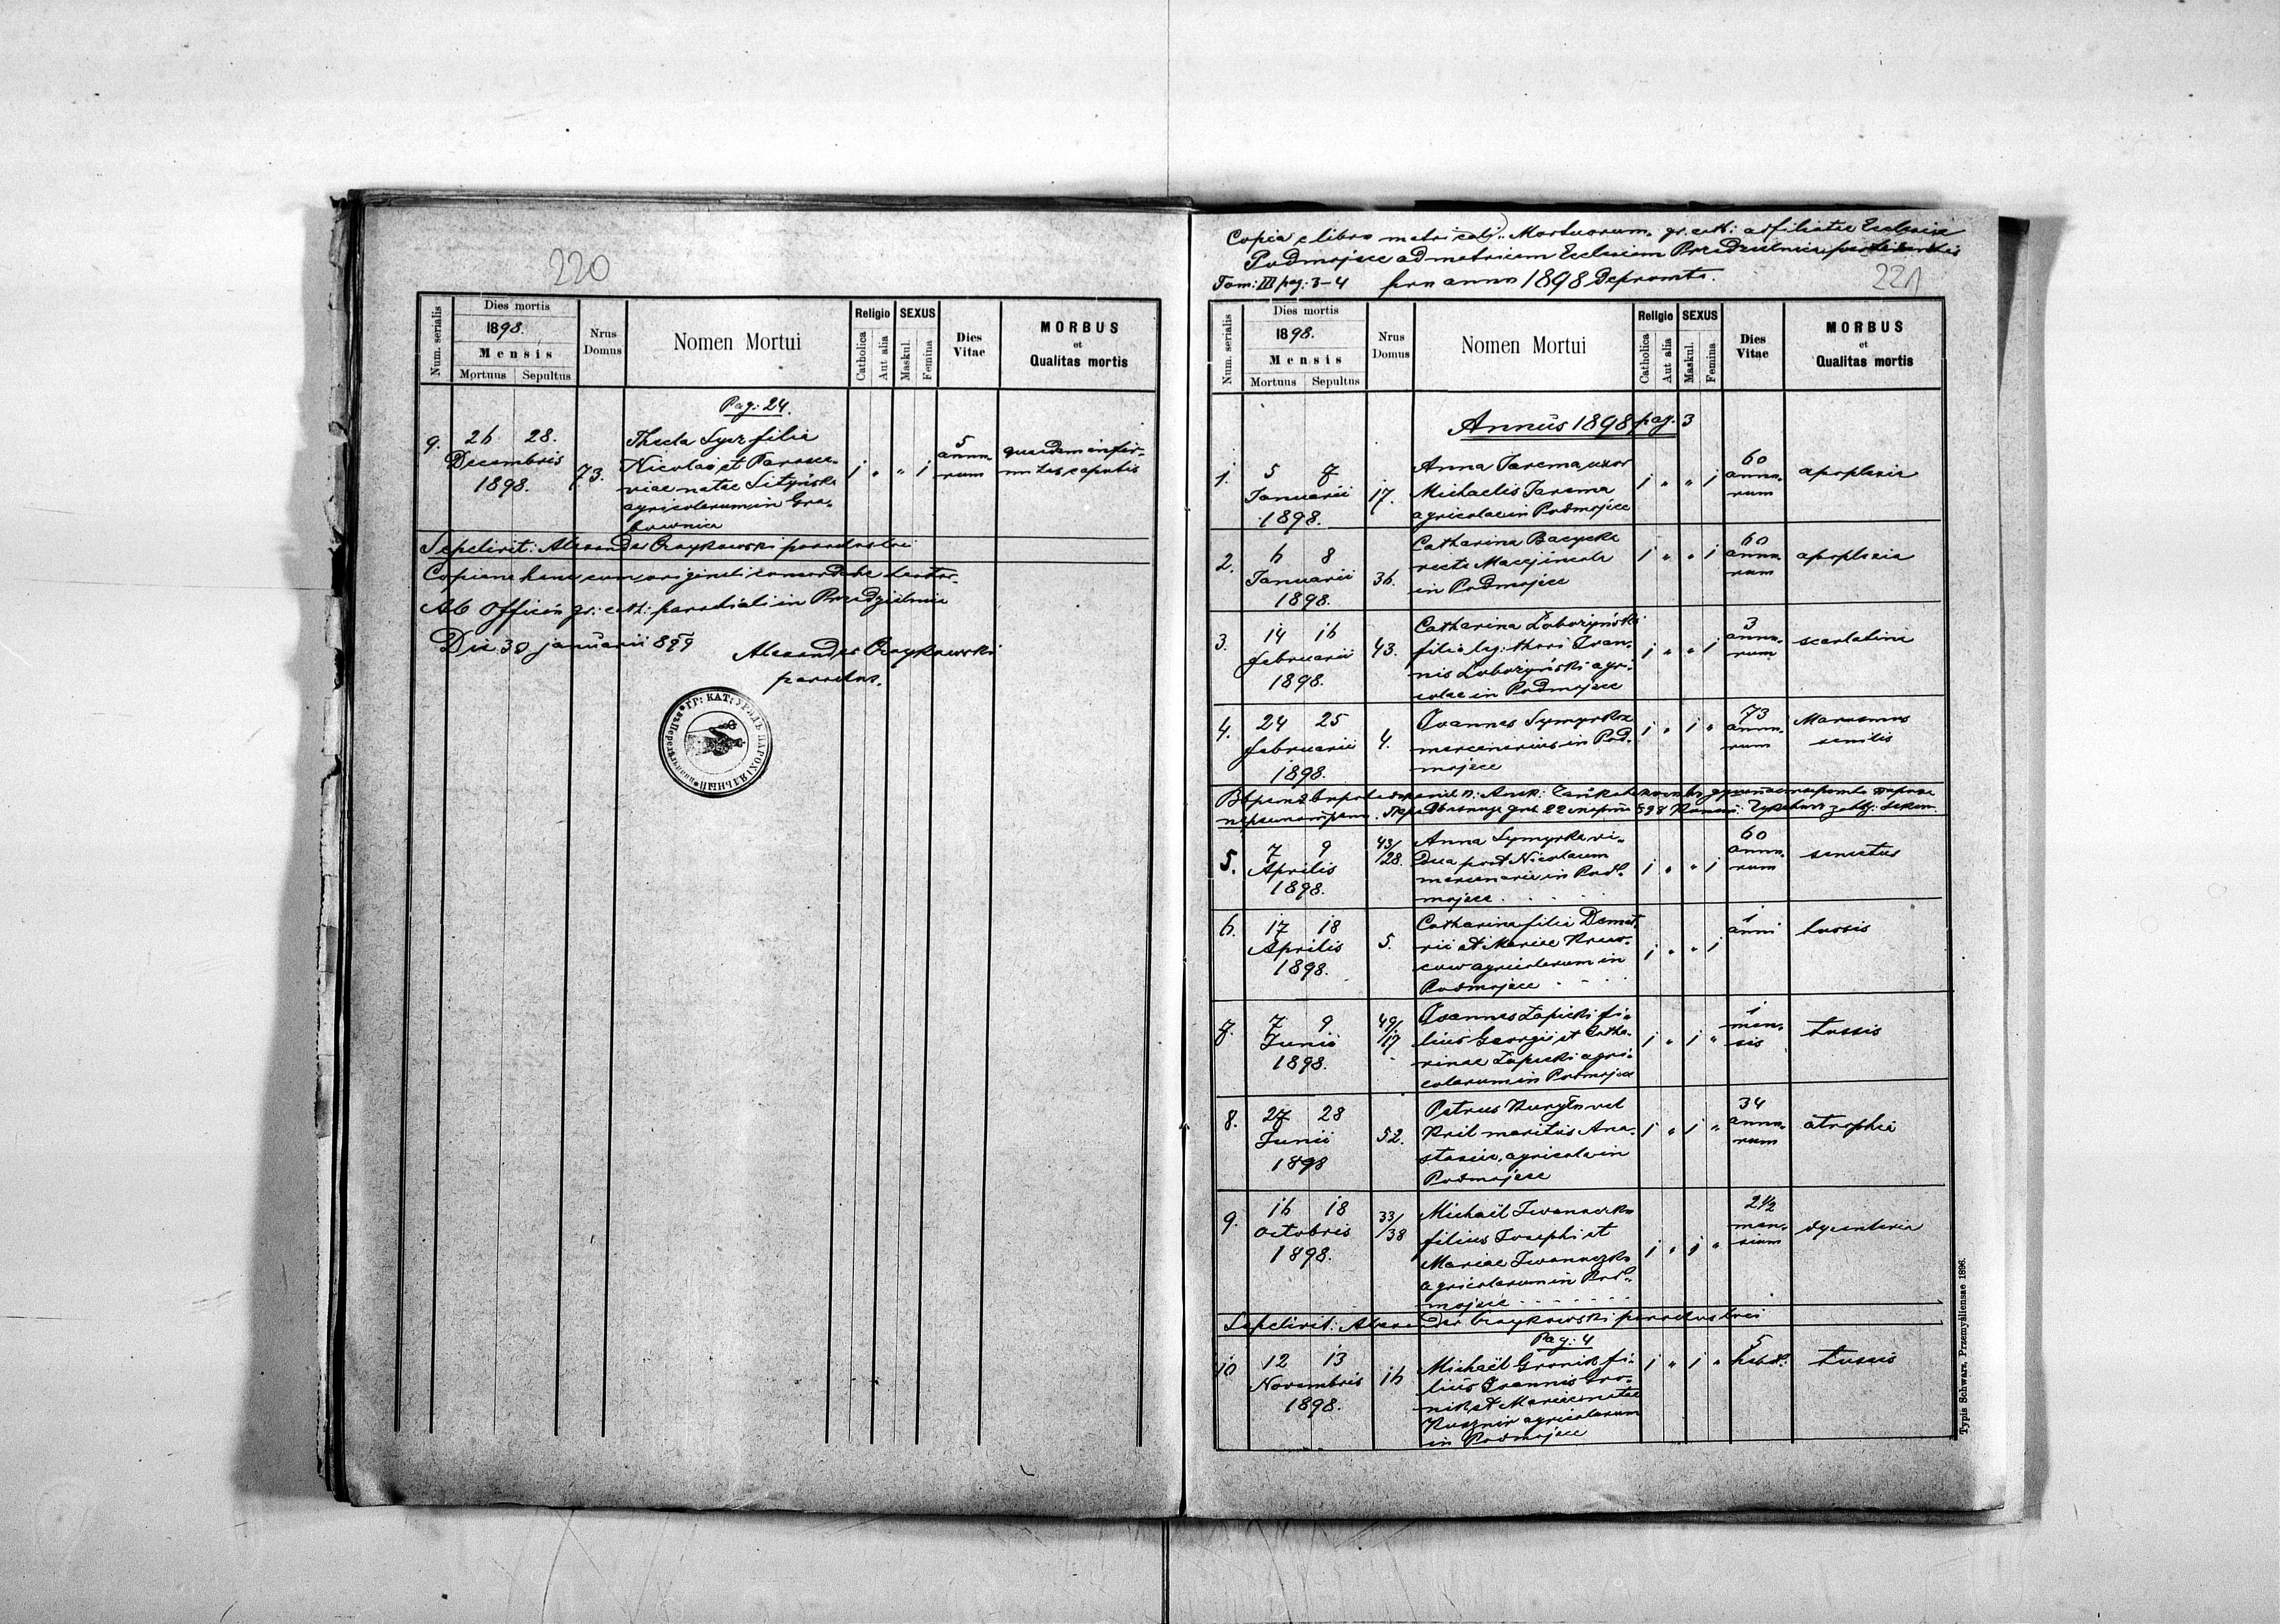 220
Num. serialis
Dies mortis
1898.
Mensis
Mortuus Sepultus
Nrus Domus
Nomen Mortui
Religio
Catholica
Aut alia
SEXUS
Maskul.
Femina
Dies Vitae
MORBUS
et
Qualitas mortis
Pag: 24.
9. 26 28. Decembris 1898. 73.
Thecla Sycz filia
Nicolai et Parasce-
viae natae
agricolarum in Gra-
bownica
j " " j
5 anno-
rum
quaedam infir-
mitas capitis
Sepelivit: Alexander Czaykowski parochus loci
Copiam hanc cum originali concordare testor.
Ab Officio gr: cath: parochiali in Przedzielnica
Die 30 januarii 899
Alexander Czaykowski
parochus.
ГР: КАТ: УРЯДЪ ПАРОХІЯЛЬНЫЙ
Copia e libro metricali "Mortuorum" gr. cath: adfiliatae Ecclesiae
Podmojsce ad matricem Ecclesiam Przedzielnica pertinentis
Tom: III pag: 3-4 pro anno 1898 depromta.
221
Num. serialis
Dies mortis
1898.
Mensis
Mortuus Sepultus
Nrus Domus
Nomen Mortui
Religio
Catholica
Aut alia
SEXUS
Maskul.
Femina
Dies Vitae
MORBUS
et
Qualitas mortis
Annus 1898 pag. 3
1. 5 7 Januarii 1898. 17.
Anna Jarema uxor
Michaelis Jarema
agricolae in Podmojsce
j " " j
60 anno-
rum
apoplexia
2. 6 8 Januarii 1898. 36.
Catharina
recte Macyj incola
in Podmojsce
j " " j
60 anno-
rum
apoplexia
3. 14 16 februarii 1898. 43.
Catharina Łobozyńska
filia leg: thori Ioan-
nis Łobozyński agri-
colae in Podmojsce
j " " j
3 anno-
rum
scarlatina
4. 24 25 februarii 1898. 4.
Ioannes Symyrko
mercenarius in Pod-
mojsce
j " j "
73 anno-
rum
Marasmus
senilis
5. 7 9 Aprilis 1898. 43/28.
Anna Symyrka vi-
dua post Nicolaum
mercenaria in Pod-
mojsce
j " " j
60 anno-
rum
senectus
6. 17 18 Aprilis 1898. 5.
Catharina filia Demet-
rii et Mariae
agricolarum in
Podmojsce
j " " j
1 anni
tussis
7. 7 9 Junii 1898. 49/17
Ioannes Łapicki fi-
lius Georgii et Catha-
rinae Łapicki agri-
colarum in Podmojsce
j " j "
1 men-
sis
tussis
8. 27 28 Junii 1898 52.
Petrus Kuryło vel
Kril maritus Ana-
stasiae, agricola in
Podmojsce
j " j "
34 anno-
rum
atrophia
9. 16 18 Octobris 1898. 33/38
Michaël Iwanaczko
filius Josephi et
Mariae Iwanaczko
agricolarum in Pod-
mojsce
j " j "
2 1/2 men-
sium
dysenteria
Sepelivit: Alexander Czaykowski parochus loci
Pag: 4
10 12 13 Novembris 1898. 16
Michaël Gronik fi-
lius Ioannis Gro-
nik, et Mariae natae
Kusznir agricolarum
in Podmojsce
j " j "
5 hebd:
tussis
Typis Schwarz, Przemyśliensae 1896.